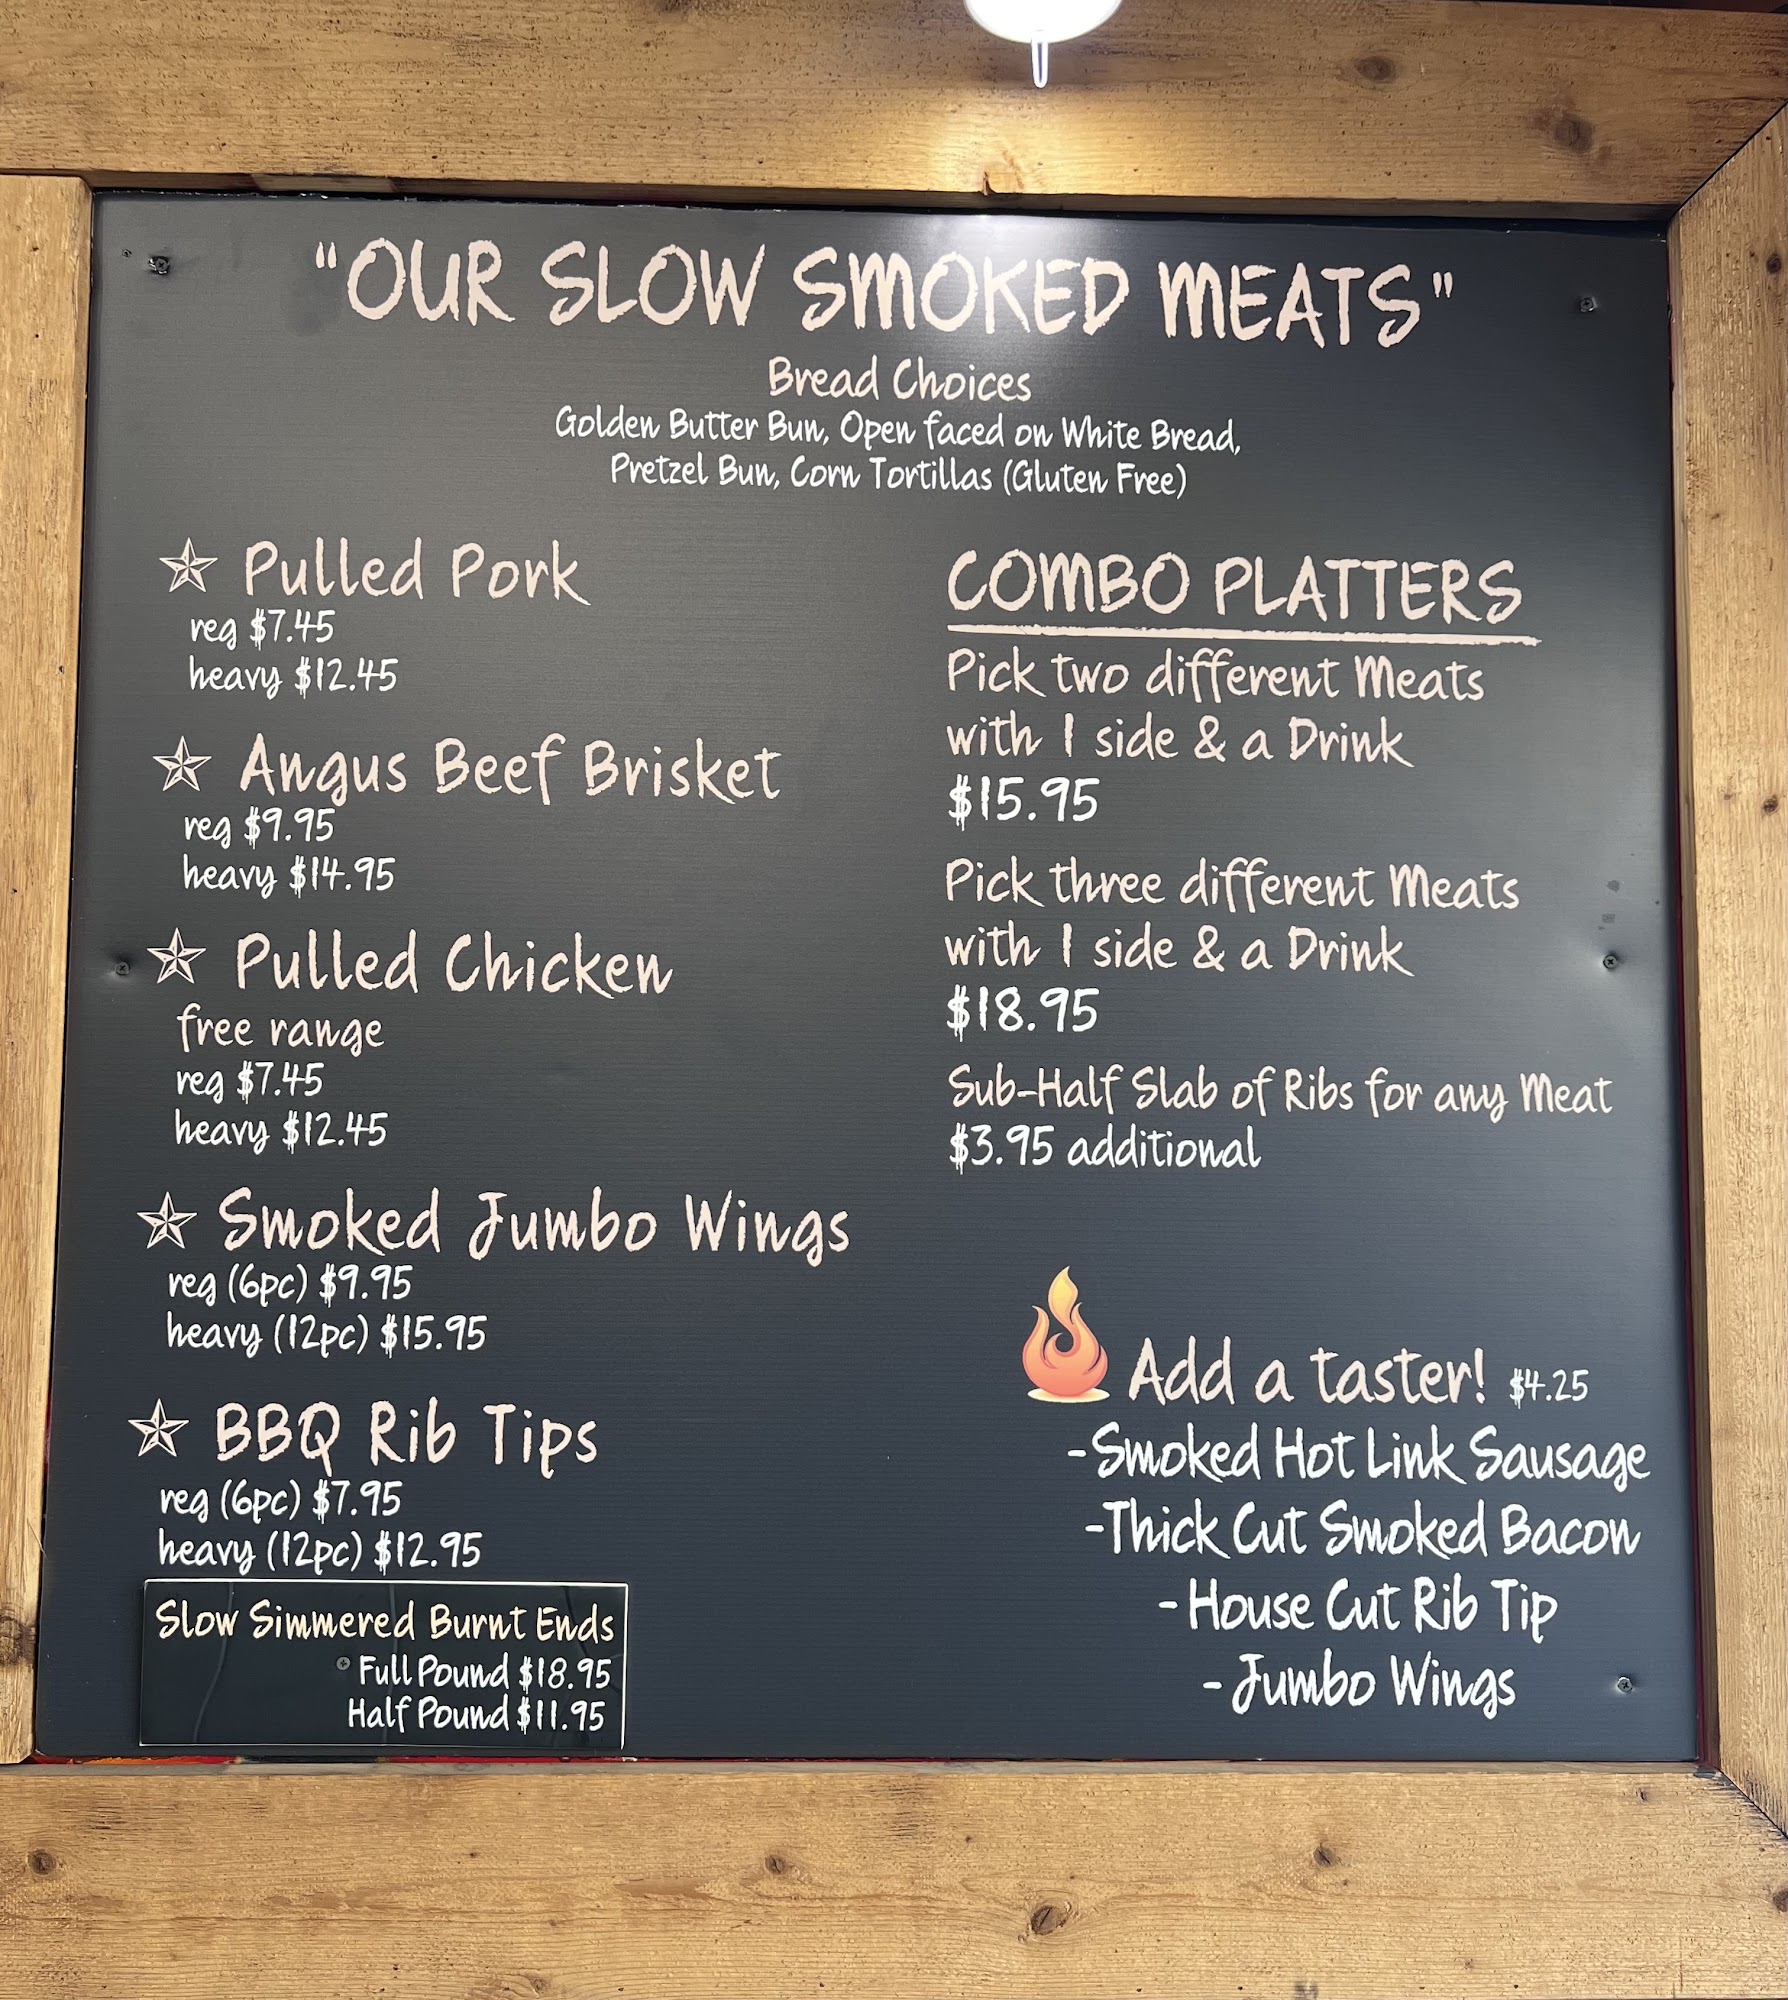 "OUR SLOW SMOKED MEATS"
Bread Choices
Golden Butter Bun, Open faced on White Bread,
Pretzel Bun, Corn Tortillas (Gluten Free)
Pulled Pork
reg $7.45
heavy $12.45
Angus Beef Brisket
reg $9.95
heavy $14.95
Pulled Chicken
free range
reg $7.45
heavy $12.45
Smoked Jumbo Wings
reg (6pc) $9.95
heavy (12pc) $15.95
BBQ Rib Tips
reg (6pc) $7.95
heavy (12pc) $12.95
Slow Simmered Burnt Ends
Full Pound $18.95
Half Pound $11.95
COMBO PLATTERS
Pick two different Meats
with 1 side & a Drink
$15.95
Pick three different Meats
with 1 side & a Drink
$18.95
Sub-Half Slab of Ribs for any Meat
$3.95 additional
Add a taster! $4.25
-Smoked Hot Link Sausage
-Thick Cut Smoked Bacon
- House Cut Rib Tip
- Jumbo Wings